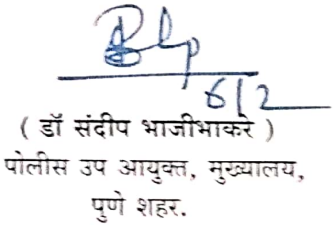 6/2
( डॉ संदीप भाजीभाकरे )
पोलीस उप आयुक्त, मुख्यालय,
पुणे शहर.